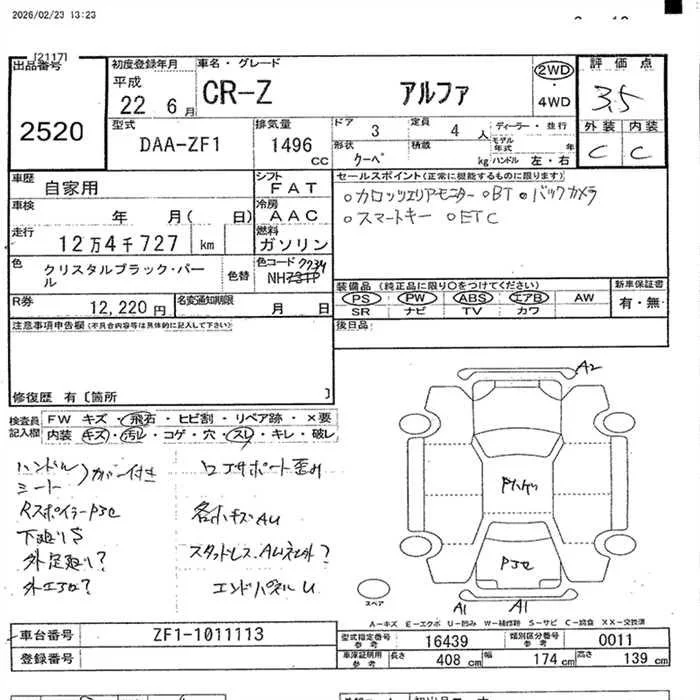 2026/02/23 13:23
[2117]
出品番号
2520
初度登録年月
平成
22 6月
車名・グレード
CR-Z アルファ
2WD
・
4WD
評価点
3.5
外装 内装
C C
型式
DAA-ZF1
排気量
1496
CC
ドア 3
定員 4 人
ディーラー・並行
モデル年式 年
形状 クーペ
積載 kg
ハンドル 左・右
車歴
自家用
シフト
FAT
車検
年 月( 日)
冷房
AAC
走行
12万4千727 km
燃料
ガソリン
色
クリスタルブラック・パール
色替
色コード
NH731P
R券
12,220円
名変通知期限
月 日
セールスポイント(正常に機能するものに限ります)
○カロッツェリアモニター ○BT ○バックカメラ
○スマートキー ○ETC
装備品 (純正品に限り○をつけてください)
PS PW ABS エアB AW
SR ナビ TV カワ
新車保証書
有・無
後日品
注意事項申告欄(不具合内容等は具体的に記入して下さい)
修復歴 有〔箇所 〕
検査員記入欄
FW キズ・飛石・ヒビ割・リペア跡・×要
内装 キズ・汚レ・コゲ・穴・スレ・キレ・破レ
ハンドル
シート
カバー付き
コアサポート歪み
Rスポイラーアワセ
各小キズAU
下廻りS
スタッドレス.AW社外?
外足廻り?
外エアロ?
エンドパネルU
A2
A1
A1
スペア
A-キズ E-エクボ U-凹み W-補修跡 S-サビ C-腐食 XX-交換済
車台番号
ZF1-1011113
登録番号
型式指定番号
参考
16439
類別区分番号
参考
0011
車庫証明用
参考
長さ 408 cm
幅 174 cm
高さ 139 cm